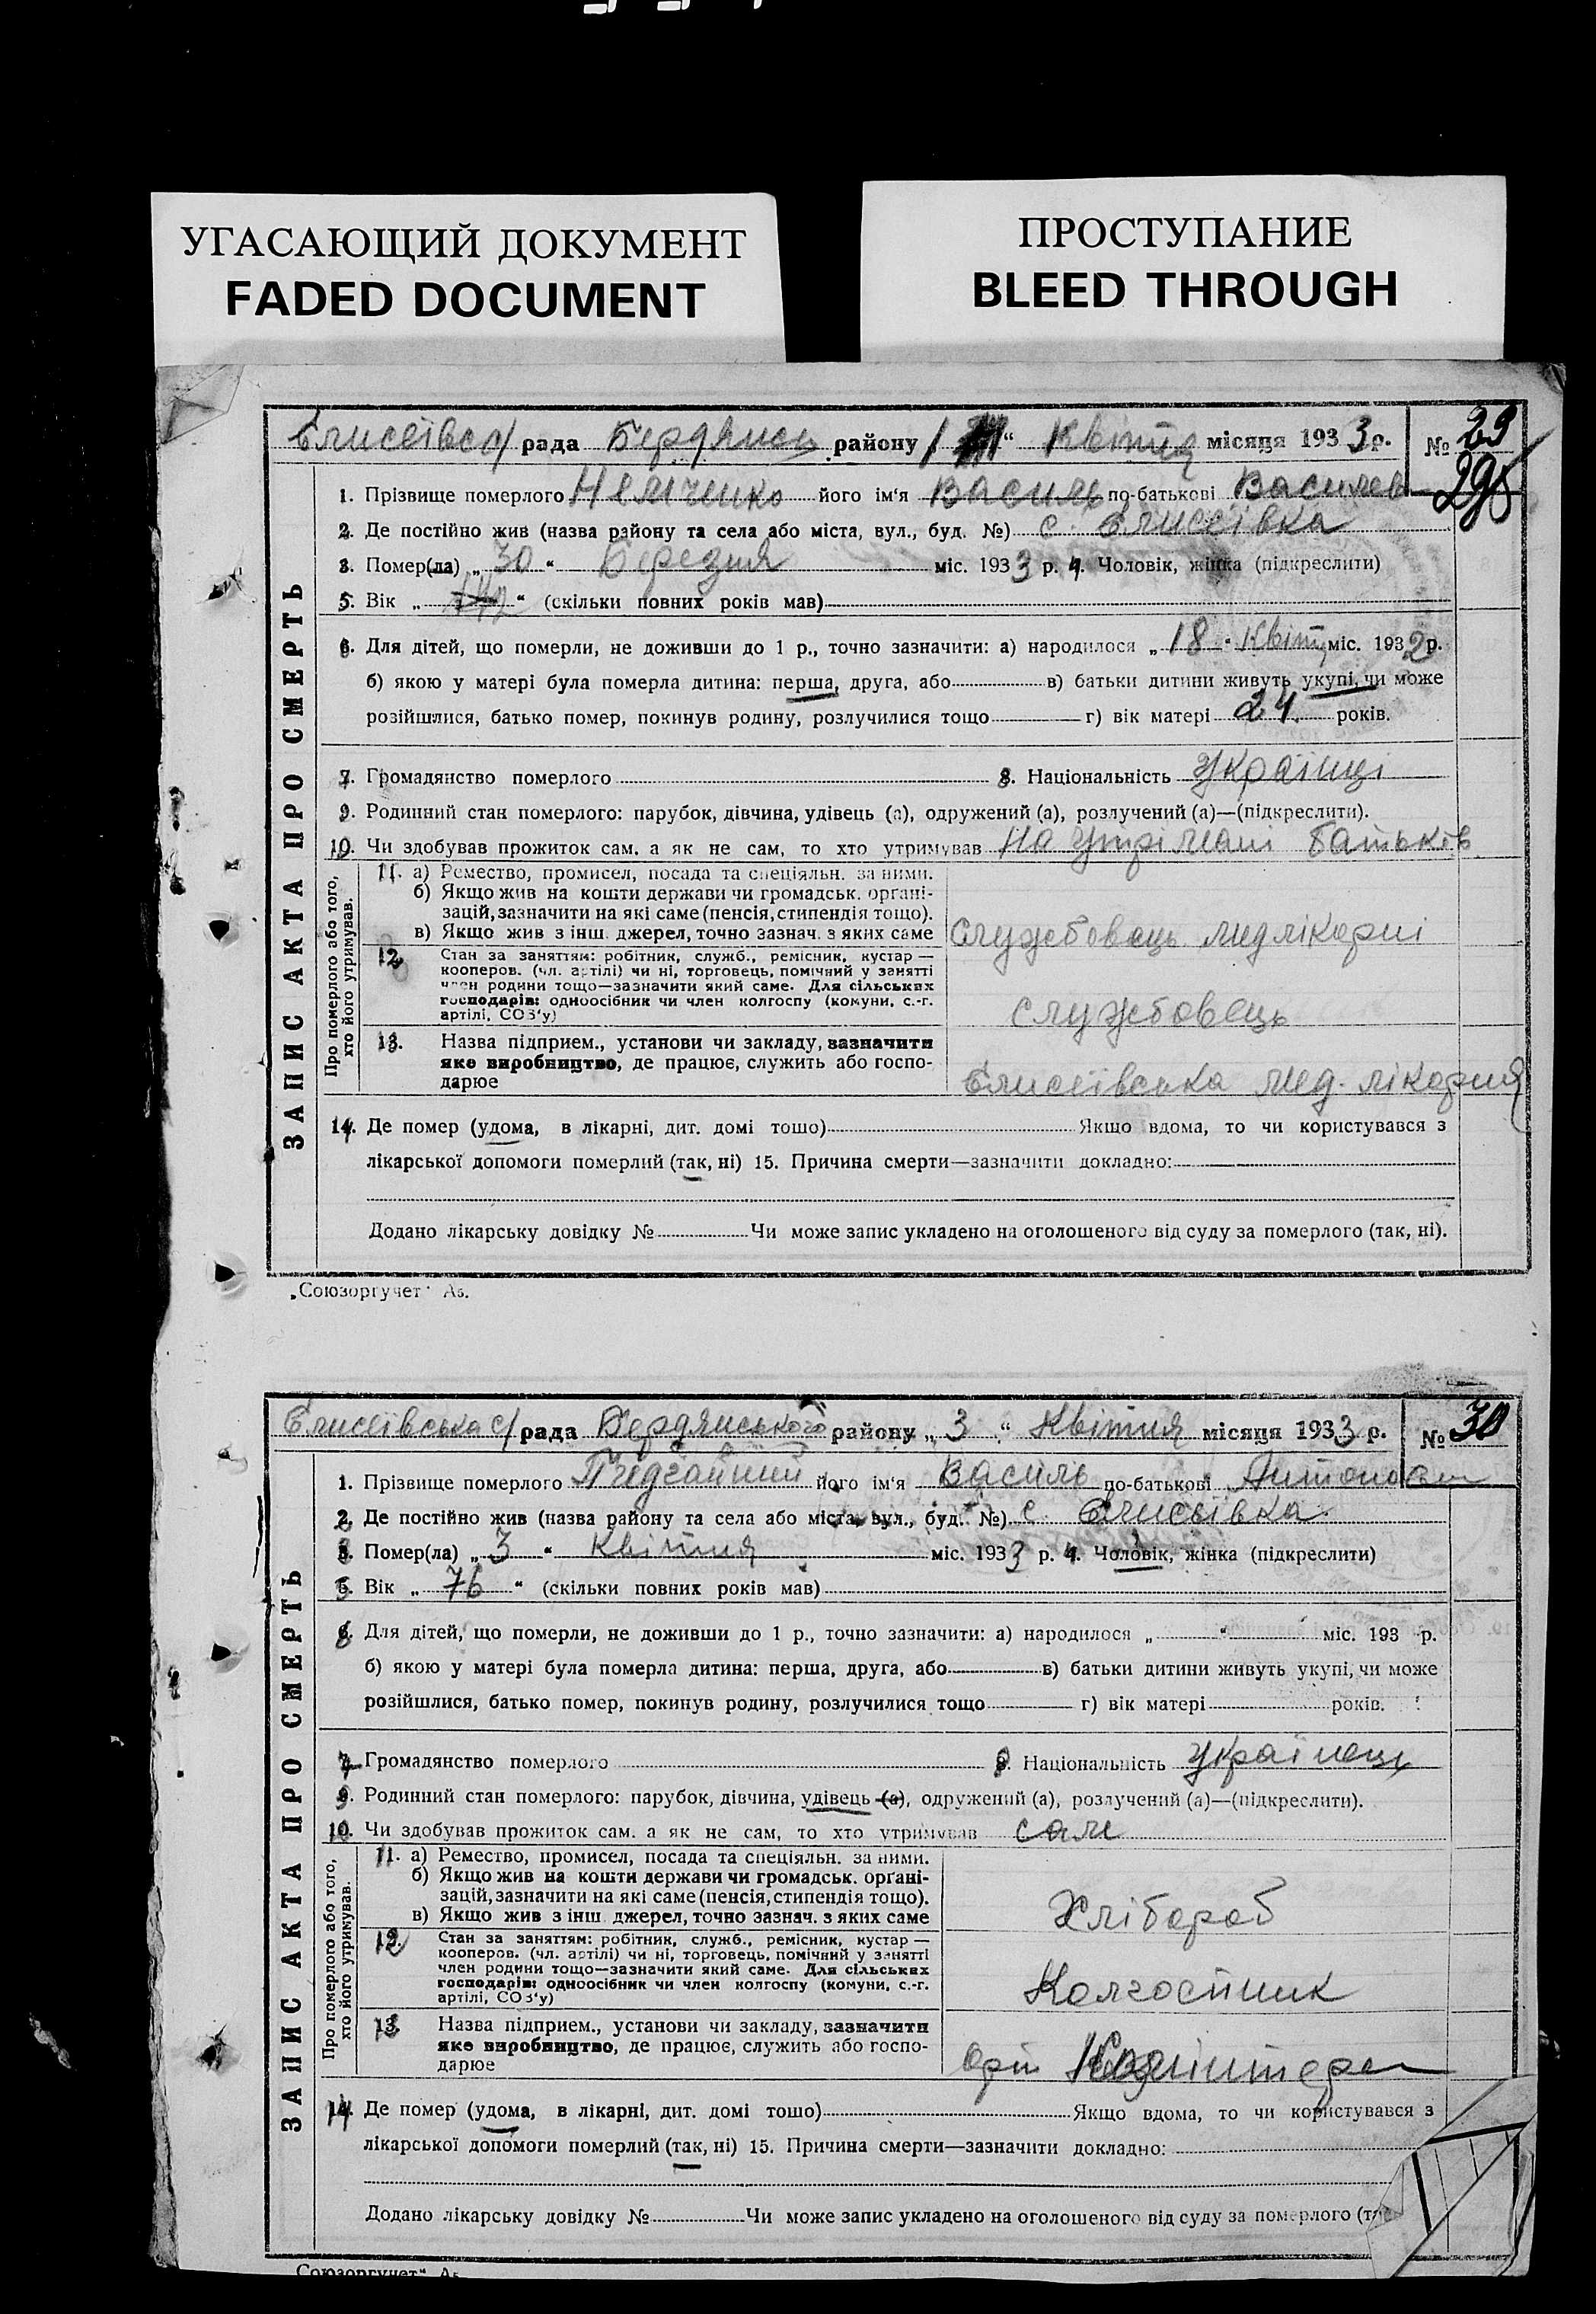 УГАСАЮЩИЙ ДОКУМЕНТ
FADED DOCUMENT
ПРОСТУПАНИЕ
BLEED THROUGH
рада району Квітня місяця 1933 р. № 29
295
1. Прізвище померлого Немченко його ім'я Василь по-батькові Василев
2. Де постійно жив (назва району та села або міста, вул., буд. №) с. Єлисеївка
3. Помер(ла) „30“ Березня міс. 1933 р. 4. Чоловік, жінка (підкреслити)
5. Вік „ “ (скільки повних років мав)
6. Для дітей, що померли, не доживши до 1 р., точно зазначити: а) народилося „18“ Квітн міс. 1932 р.
б) якою у матері була померла дитина: перша, друга, або в) батьки дитини живуть укупі, чи може
розійшлися, батько помер, покинув родину, розлучилися тощо г) вік матері 24 років.
7. Громадянство померлого 8. Національність Українці
9. Родинний стан померлого: парубок, дівчина, удівець (а), одружений (а), розлучений (а)—(підкреслити).
10. Чи здобував прожиток сам. а як не сам, то хто утримував На утрімані батьків
ЗАПИС АКТА ПРО СМЕРТЬ
Про померлого або того,
хто його утримував.
11. а) Ремество, промисел, посада та спеціяльн. за ними.
б) Якщо жив на кошти держави чи громадськ. органі-
зацій, зазначити на які саме (пенсія, стипендія тощо).
в) Якщо жив з інш. джерел, точно зазнач. з яких саме
Службовець медлікарні
12. Стан за заняттям: робітник, служб., ремісник, кустар —
кооперов. (чл. артілі) чи ні, торговець, помічний у занятті
член родини тощо—зазначити який саме. Для сільських
господарів: одноосібник чи член колгоспу (комуни, с.-г.
артілі, СОЗ'у)
службовець
13. Назва підприєм., установи чи закладу, зазначити
яке виробництво, де працює, служить або госпо-
дарює
Єлисеївська мед. лікарня
14. Де помер (удома, в лікарні, дит. домі тошо) Якщо вдома, то чи користувався з
лікарської допомоги померлий (так, ні) 15. Причина смерти—зазначити докладно:
Додано лікарську довідку № Чи може запис укладено на оголошеного від суду за померлого (так, ні).
„Союзоргучет“ Аз.
Єлисеївська с/рада Бердянського району „3“ Квітня місяця 1933 р. № 30
1. Прізвище померлого Підгайний його ім'я Василь по-батькові
2. Де постійно жив (назва району та села або міста, вул., буд. №) с. Єлисеівка
3. Помер(ла) „3“ Квітня міс. 1933 р. 4. Чоловік, жінка (підкреслити)
5. Вік „76“ (скільки повних років мав)
6. Для дітей, що померли, не доживши до 1 р., точно зазначити: а) народилося „ “ міс. 193 р.
б) якою у матері була померла дитина: перша, друга, або в) батьки дитини живуть укупі, чи може
розійшлися, батько помер, покинув родину, розлучилися тощо г) вік матері років.
7. Громадянство померлого 8. Національність українець
9. Родинний стан померлого: парубок, дівчина, удівець (а), одружений (а), розлучений (а)—(підкреслити).
10. Чи здобував прожиток сам. а як не сам, то хто утримував сам
ЗАПИС АКТА ПРО СМЕРТЬ
Про померлого або того,
хто його утримував.
11. а) Ремество, промисел, посада та спеціяльн. за ними.
б) Якщо жив на кошти держави чи громадськ. органі-
зацій, зазначити на які саме (пенсія, стипендія тощо).
в) Якщо жив з інш. джерел, точно зазнач. з яких саме
Хлібороб
12. Стан за заняттям: робітник, служб., ремісник, кустар —
кооперов. (чл. артілі) чи ні, торговець, помічний у занятті
член родини тощо—зазначити який саме. Для сільських
господарів: одноосібник чи член колгоспу (комуни, с.-г.
артілі, СОЗ'у)
Колгоспник
13. Назва підприєм., установи чи закладу, зазначити
яке виробництво, де працює, служить або госпо-
дарює
арт
14. Де помер (удома, в лікарні, дит. домі тошо) Якщо вдома, то чи користувався з
лікарської допомоги померлий (так, ні) 15. Причина смерти—зазначити докладно:
Додано лікарську довідку № Чи може запис укладено на оголошеного від суду за померлого (та
Союзоргучет“ Аз.